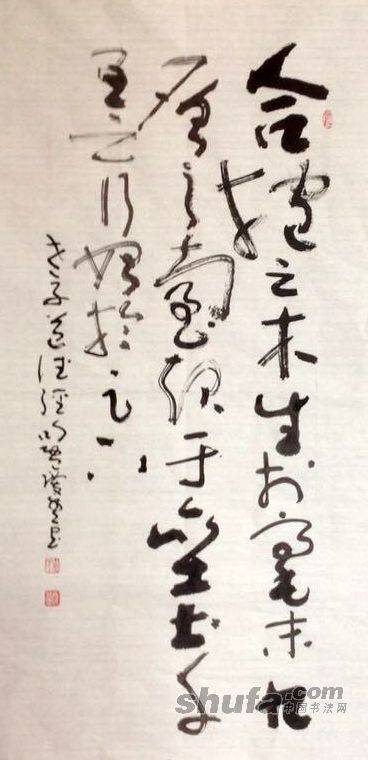 合抱之木生於毫末九
層之臺起于累土千
里之行始於足下
老子道德經
shufa.com
中国书法网